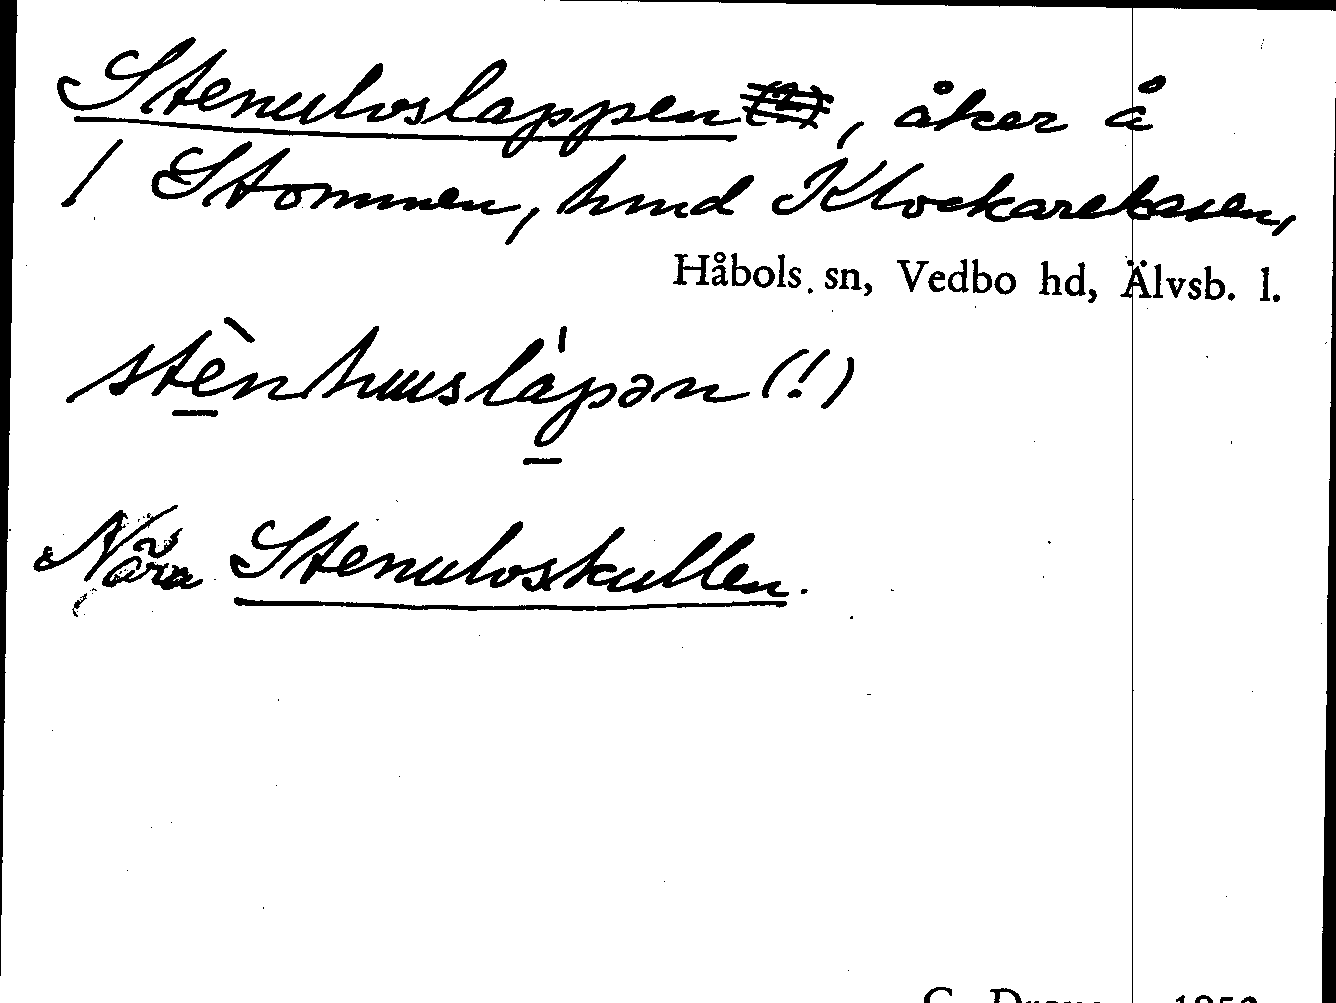 Stenulvslappen, åker å
1 Stommen, hmd Klockarekasen,
Håbols sn, Vedbo hd, Älvsb. l.
stènhuuslàpən (!)
Nära Stenulvskullen.